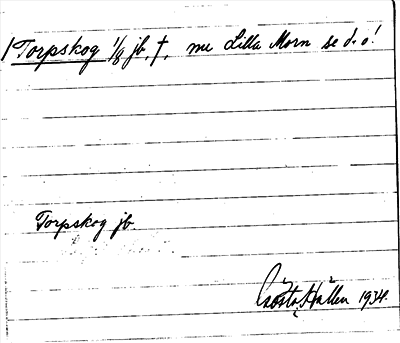 Torpskog 1/8 jb, †, me Lilla Morn se d. o!
Torpskog jb
Gösta Hallén 1934.